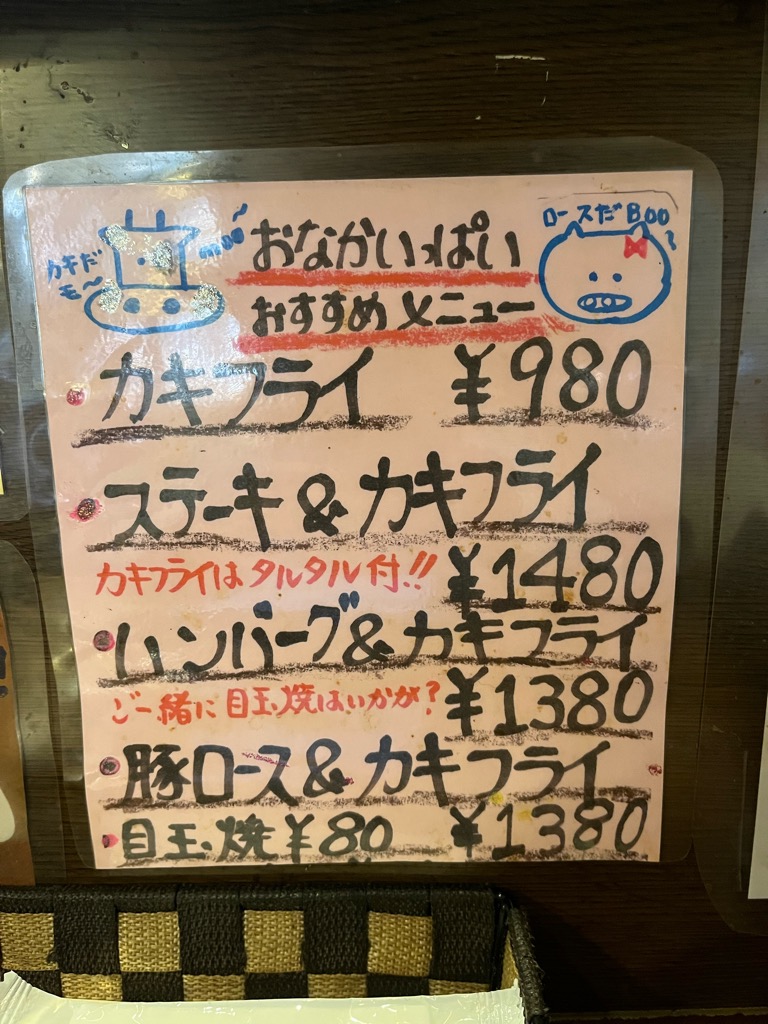 カキだ
モ〜
おなかいっぱい
ロースだBOO
おすすめメニュー
カキフライ ¥980
ステーキ&カキフライ
カキフライはタルタル付!! ¥1480
ハンバーグ&カキフライ
ご一緒に目玉焼はいかが? ¥1380
豚ロース&カキフライ
目玉焼¥80 ¥1380